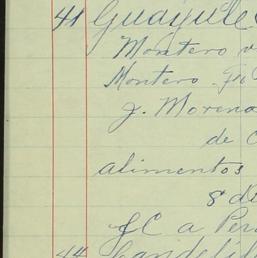 41 Guayule
Montero v
Montero
J. Moreno
de C
alimentos
8 de
JC a Per
44 Candelil